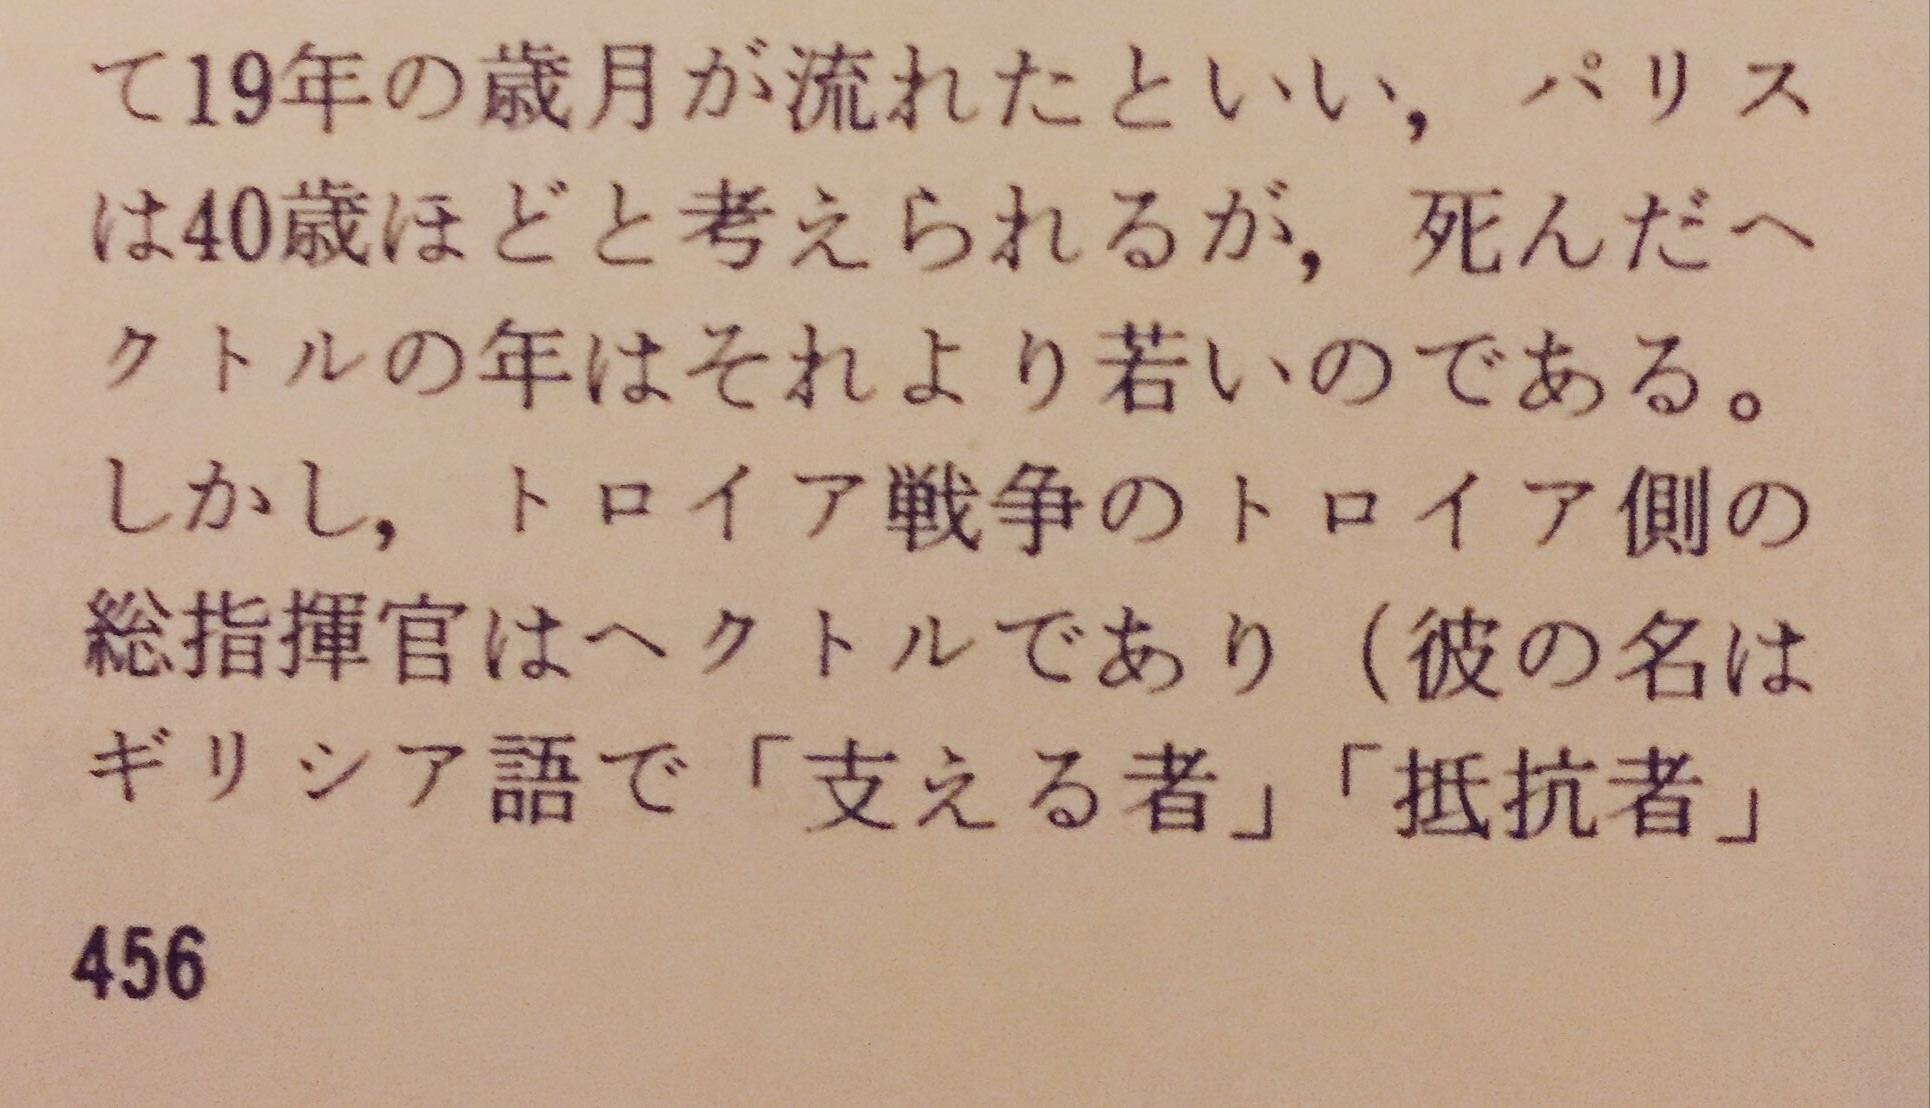 て19年の歳月が流れたといい，パリス
は40歳ほどと考えられるが，死んだヘ
クトルの年はそれより若いのである。
しかし，トロイア戦争のトロイア側の
総指揮官はヘクトルであり（彼の名は
ギリシア語で「支える者」「抵抗者」
456